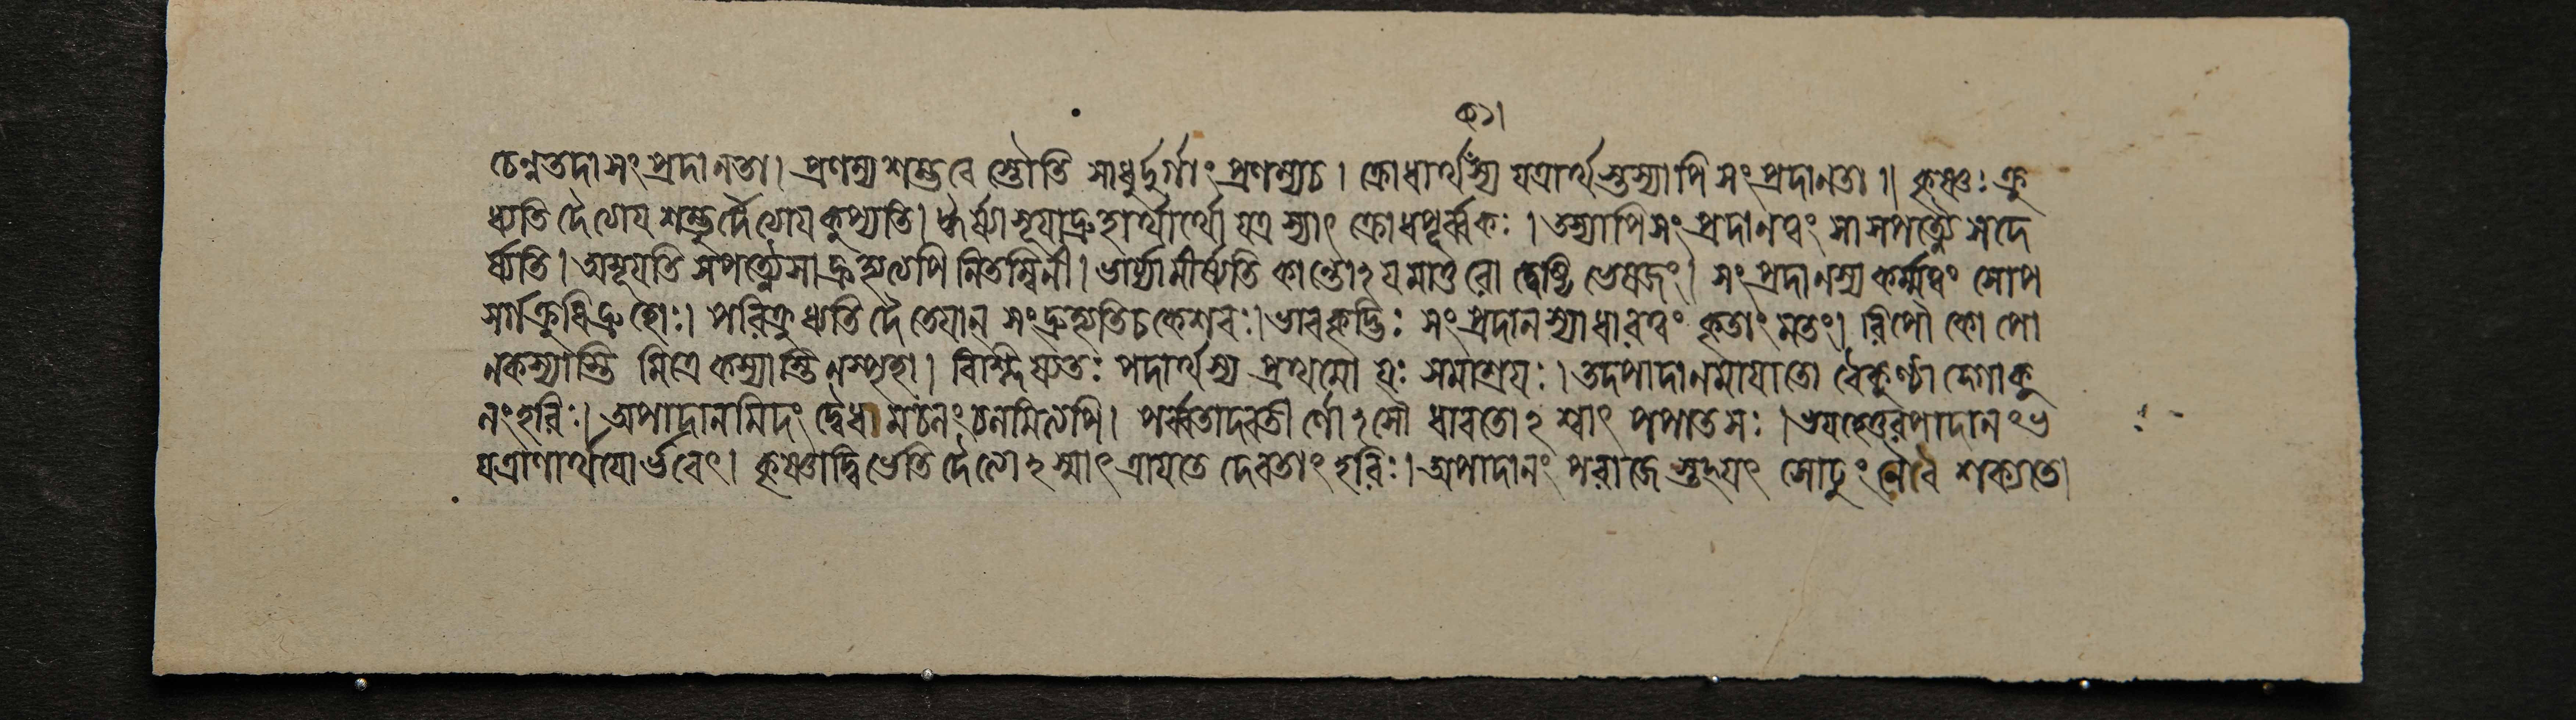 চেন্নতদাসংপ্রদানতা। প্রণম্যশম্ভবে স্তৌতি সাধুর্দুর্গাং প্রণম্যচ। ক্রোধার্থস্য যত্রার্থস্তস্যাপিসংপ্রদানতা॥ কৃষ্ণঃক্রু
ধ্যতি দৈত্যেয় শম্ভুর্দৈত্যেয়কুপ্যতি। ঈর্ষ্যাসূয়াদ্রুহার্থার্থো যত্র স্যাৎ ক্রোধপূর্ব্বকঃ। তস্যাপিসংপ্রদানত্বং সাসপত্ন্যৈসদে
র্ষ্যতি। অসূয়তি সপত্ন্যৈসা দ্রুহ্যত্যেপি নিতম্বিনী। ভার্য্যামীর্ষ্যতি কান্তোঽয়মাতুরো দ্বেষ্টি ভেষজং। সংপ্রদানস্য কর্ম্মত্বং সোপ
সর্গক্রুধিদ্রুহোঃ। পরিক্রুধ্যতি দৈতেয়ান্ সংদ্রুহ্যতিচকেশবঃ। ভাবক্লপ্তিঃ সংপ্রদানস্যাধারত্বং কৃতাং মতং। রিপৌ কোপো
নকস্যাস্তি মিত্রে কস্যাস্তি নস্পৃহা। বিশ্লিষ্যতঃ পদার্থস্য প্রথমো যঃ সমাশ্রয়ঃ। তদপাদানমায়াতো বৈকুণ্ঠাদ্গোকু
নংহরিঃ। অপাদানমিদং দ্বেধা মচনংচনমিত্যপি। পর্ব্বতাদবতীর্ণোঽসৌ ধাবতোঽশ্বাৎ পপাতসঃ। ভয়হেতুরপাদানংভ
য়ত্রাণার্থয়োর্ভবেৎ। কৃষ্ণাদ্বিভেতি দৈত্যোঽস্মাৎ ত্রায়তে দেবতাং হরিঃ। অপাদানং পরাজেস্তুযৎ সোঢুং নৈব শক্যতে।